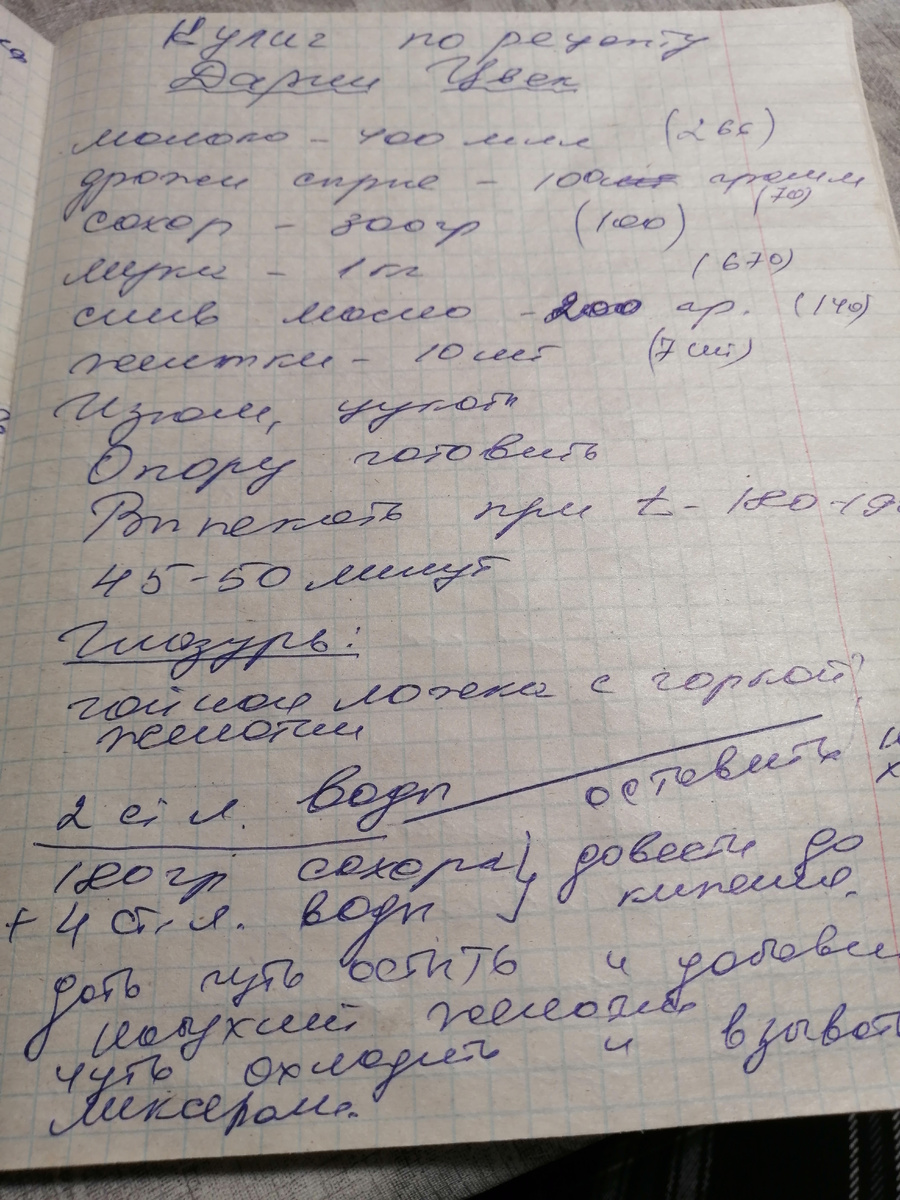 Кулич по рецепту
Дарии Цвек
молоко - 400 милл (265)
дрожжи сырые - 100 грамм (70)
сахар - 300гр (100)
мука - 1 кг (670)
слив масло - 200 гр. (140)
желтки - 10 шт (7 шт)
Изюм, цукаты
Опару готовить
Выпекать при t - 180-19
45-50 минут
Глазурь:
чайная ложка с горкой
желатин
2 ст л. воды оставить
180 гр сахара } довести до
+ 4 ст. л. воды кипения.
дать чуть остыть и добави
набухший желатин
чуть охладить и взбиват
миксером.